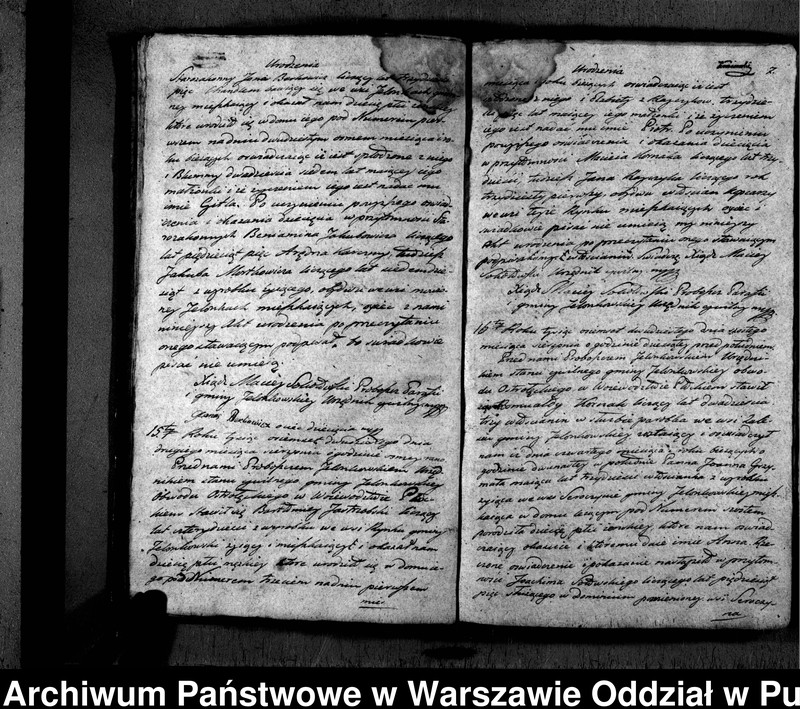 Urodzenia
Starozakonny Jana Berkowicz liczący lat trzydzieści
pięć Handlem bawiący się we wsi Jelonkach
mieszkający i okazał nam dziecię płci
które urodziło się w domu jego pod Numerem pier
wszem na dniu dwudziestym osmem miesiąca i ro
ku bieżących oswiadczając iż jest spłodzone z niego
i Bluwny dwadzieścia siedem lat mającey jego
małżonki i że życzeniem jego jest nadać mu
imie Gitla. Po uczynieniu powyższego oswiad
czenia i okazania dziecięcia w przytomności Sta
rozakonnych Beniamina Jakubowicza liczącego
lat pięćdziesiąt pięć Arędarza karczmy, tudzież
Jakuba Moszkowicza liczącego lat siedemdzie
siąt z wyrobku życzącego, obydwu we wsi
Jelonkach mieszkających, ojciec z nami
niniejszy Akt urodzenia po przeczytaniu
onego stawającym podpisał, bo świadkowie
pisać nie umieią
Xiądz Maciey Sokołowski Proboszcz Parafii
i gminy Jelonkowskiey Urzędnik cywilny mpp
Berkowicz ociec dziecięcia mpp
15ty Roku Tysiąc osiemset dwudziestego dnia
drugiego miesiąca sierpnia o godzinie
Przed nami Proboszczem Jelonkowskiem Urzęd
nikiem stanu cywilnego gminy Jelonkowskiey
Obwodu Ostrołęckiego w Województwie Płoc
kiem stawił się Bartłomiey Jastrzębski liczący
lat czterydzieści z wyrobku we wsi Rynku gminy
Jelonkowski żyjący i mieszkający i okazał nam
dziecię płci męskiey które urodziło się w domu je
go pod Numerem trzecim na dniu pierwszem
mie
Urodzenia
7.
miesiąca i roku bieżących oswiadczając iż jest
spłodzone z niego i Elżbiety z Kaczychow, trzydzie
ści lat mającey jego małżonki i że życzeniem
jego jest nadać mu imie Piotr. Po uczynieniu
powyższego oswiadczenia i okazania dziecięcia
w przytomności Macieja Komaka liczącego lat trzy
dzieści, tudzież Jana Kaczyka liczącego rok
trzydziesty pierwszy, obydwu
we wsi teyże Rynku mieszkających, ojciec i
świadkowie pisać nie umieią my niniejszy
Akt urodzenia po przeczytaniu onego stawającym
podpisaliśmy. Xiądz Maciey
Sokołowski Urzędnik cywilny mpp
Xiądz Maciey Sokołowski Proboszcz Parafii
i gminy Jelonkowskiey Urzędnik cywilny mpp
16ty Roku tysiąc osiemset dwudziestego dnia szóstego
miesiąca sierpnia o godzinie dziesiątey przed południem.
Przed nami Proboszczem Jelonkowskiem Urzędni
kiem stanu cywilnego gminy Jelonkowskiey obwo
du Ostrołęckiego w Województwie Płockiem stawił
się Romuałdy Kornak liczący lat dwadzieścia
trzy w służbie parobka we wsi
gminy Jelonkowskiey zostający i oswiadczył
nam iż dnia czwartego miesiąca i roku bieżących o
godzinie dwunastey w południe Panna Joanna Grzy
mała mająca lat trzydzieści z wyrobku
żyjąca we wsi Seroczynie gminy Jelonkowskiey mięsz
kająca w domu liczącym pod Numerem szóstem
porodziła dziecię płci żeńskiey które nam oswiad
czający okazuie i któremu daie imie Anna. Rze
czone oswiadczenie i pokazanie nastąpiło w przytom
ności Joachima liczącego lat pięćdziesiąt
pięć służącego w domu wsi Seroczy
na
Archiwum Państwowe w Warszawie Oddział w Pu